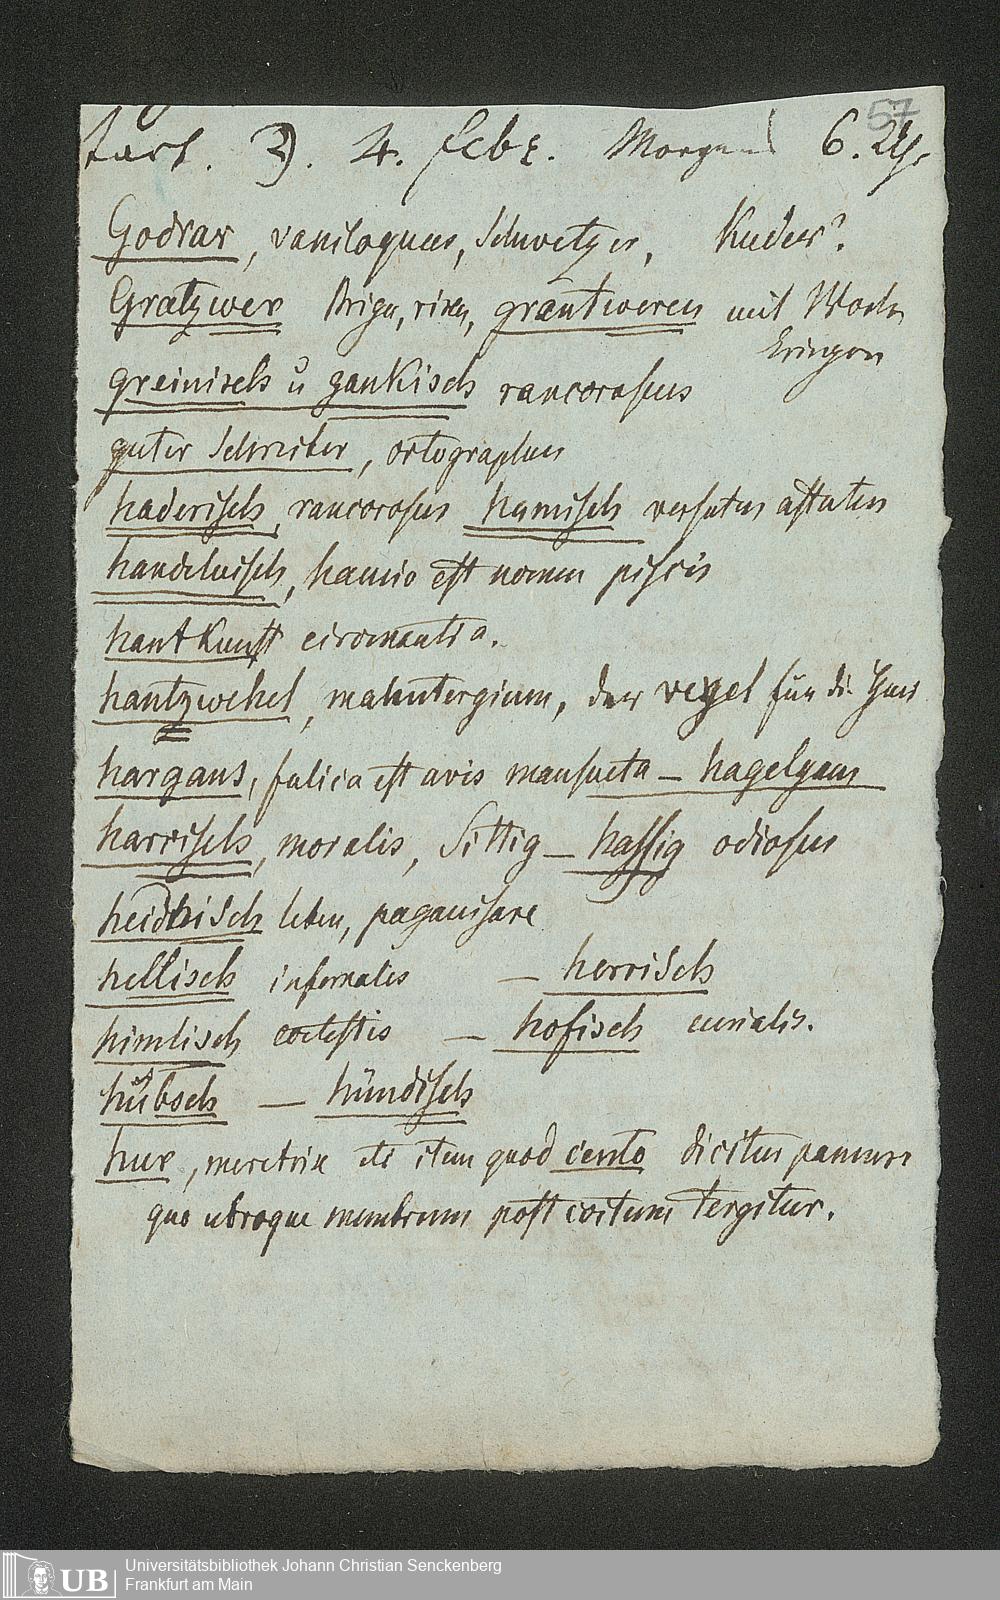 57
3). 4. febr. Morgens 6. Uhr
Godrar, vaniloquus, Schwetzer, Kuder?
Gratzwer Krigen, risen, grantweren mit Worten
kringen
greinisch u gankisch rancorosus
guter Schreiber, ortographus
haderisch, rancorosus hamisch versutus astutus
handelwisch, hamio est nomen piscis
hantkunst ciromantia.
hantzwehel, manutergium, der vegel für die
hargans, fulica est avis mansueta – hagelgans
harrisch, moralis, Sittig – hassig odiosus
heidnisch leben, paganisare
hellisch infernales – herrisch
himlisch coelestis – hofisch curialis.
hübsch – hündisch
hur, meretrix etc item quod cento dicitur pannus
quo utroque membrum post coitum tergitur.
UB Universitätsbibliothek Johann Christian Senckenberg
Frankfurt am Main